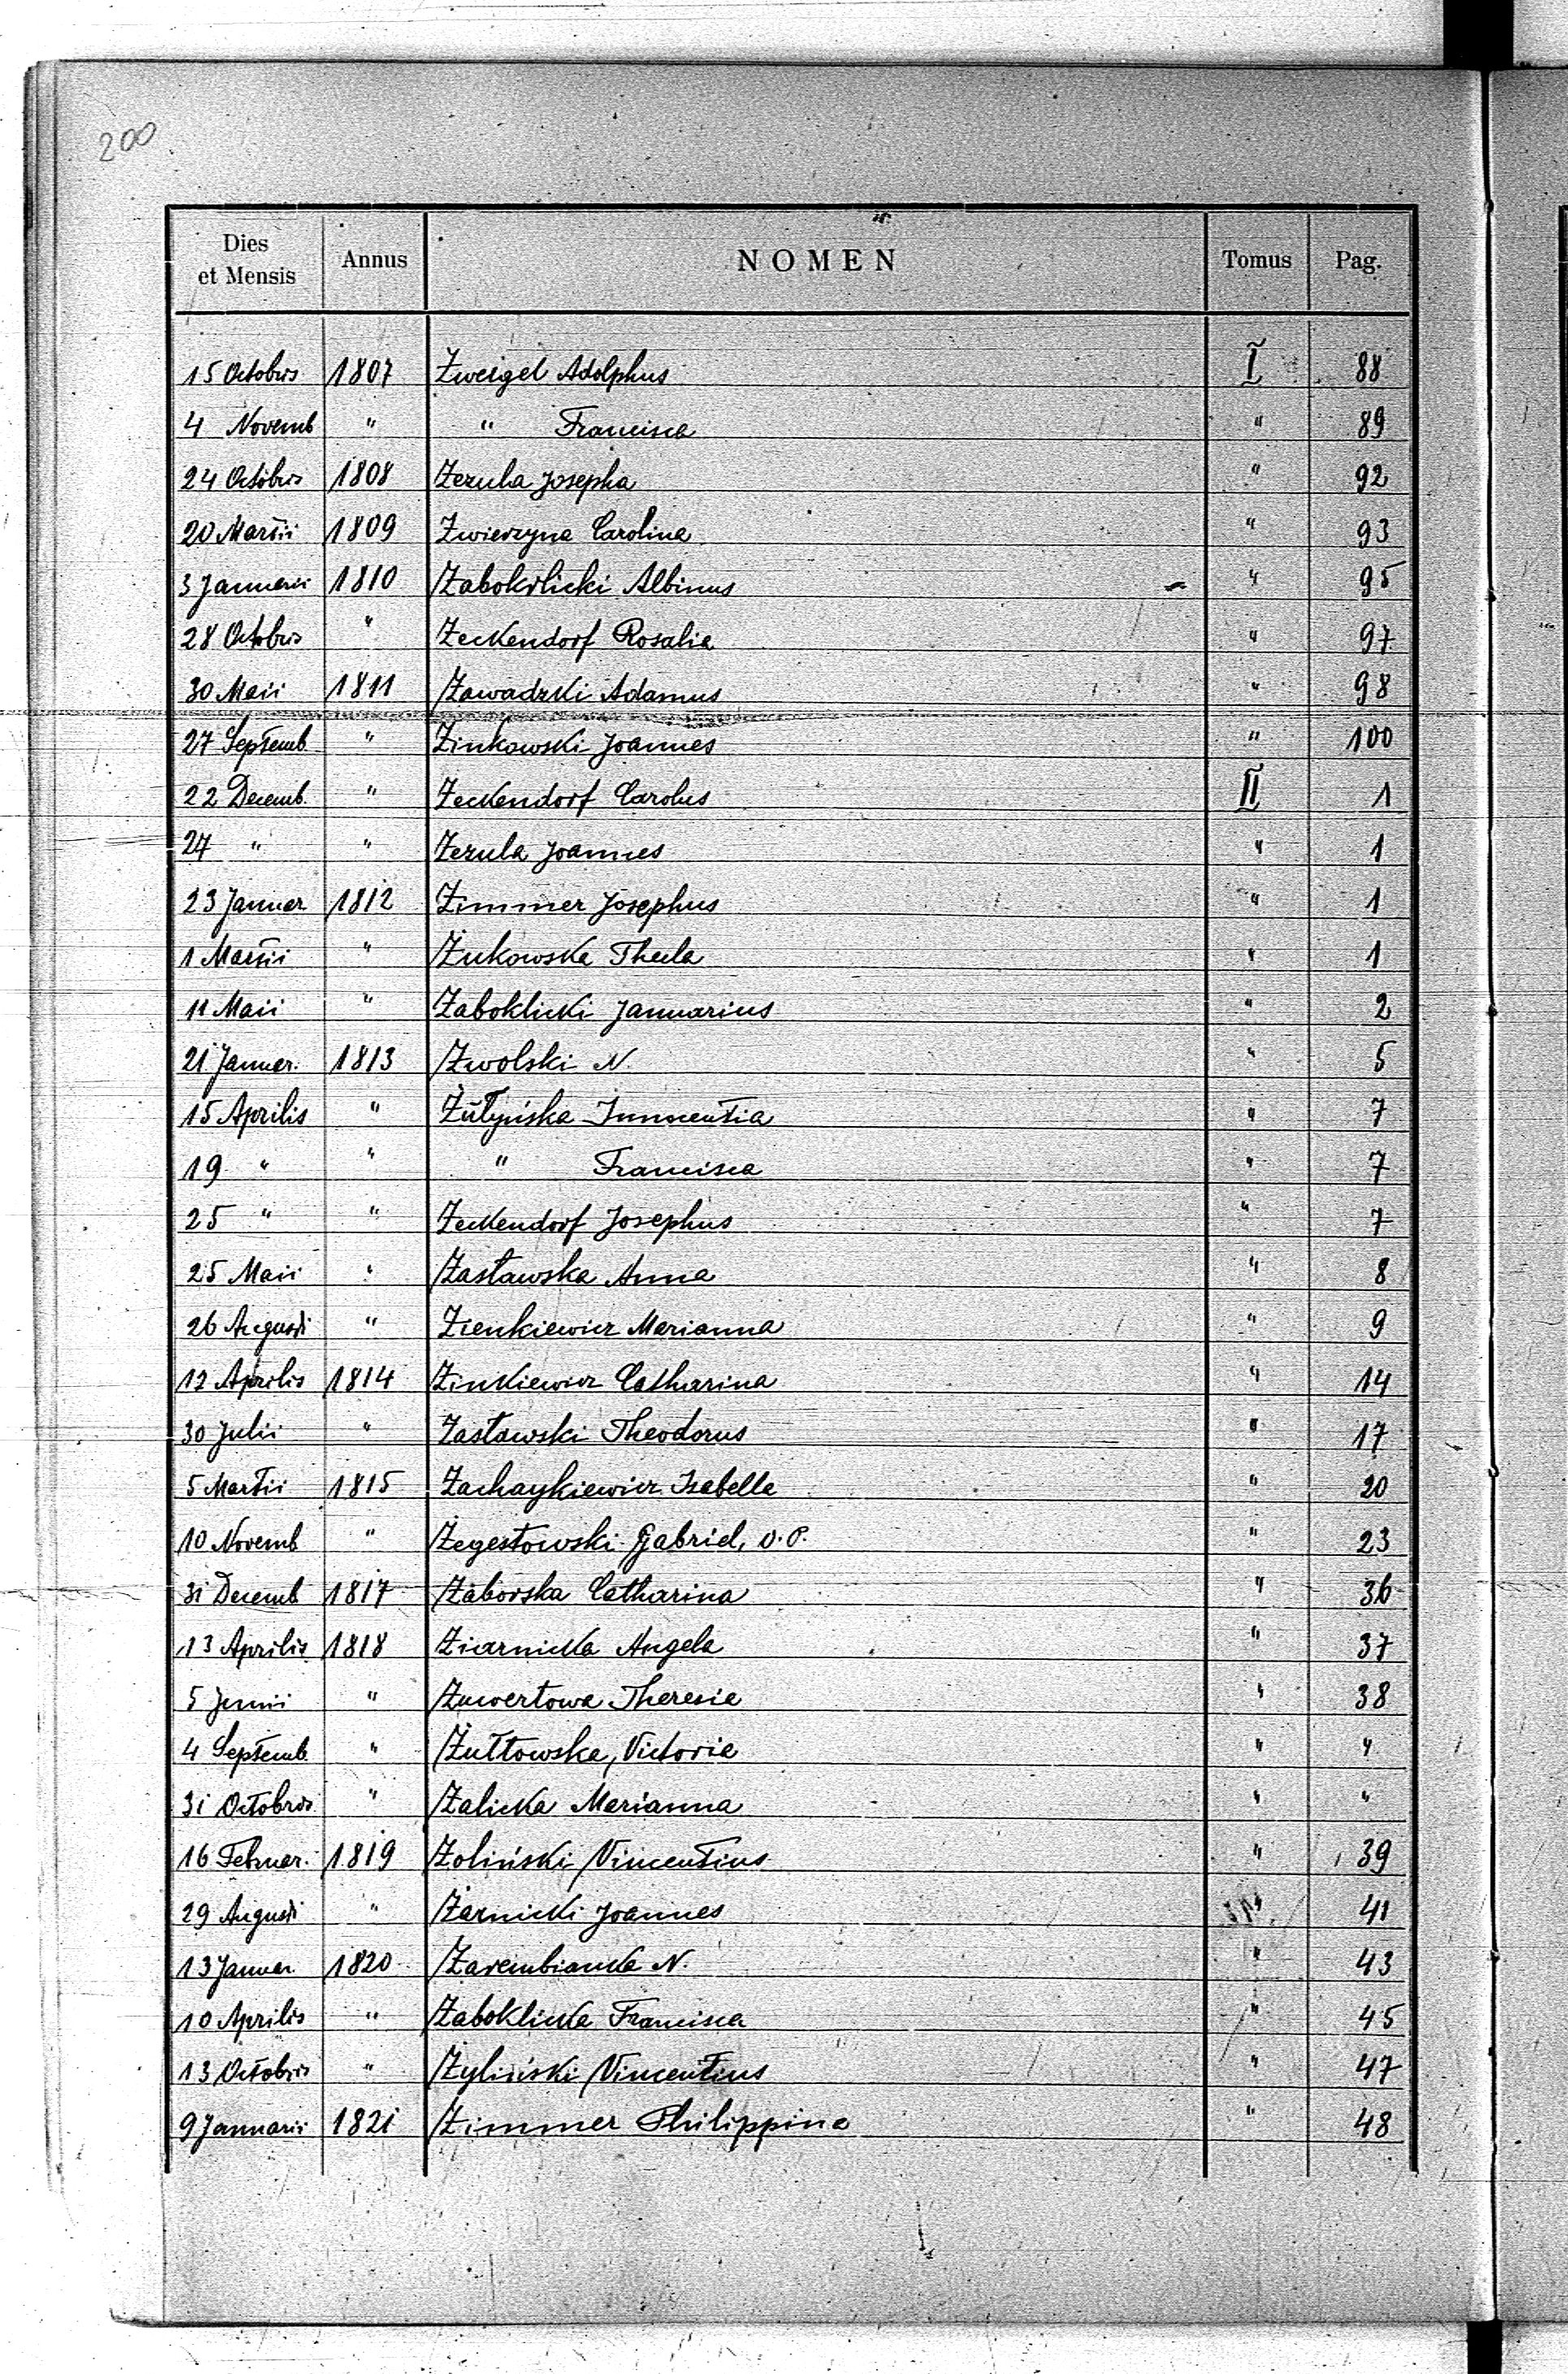 200
Dies et Mensis Annus NOMEN Tomus Pag.
15 Octobris 1807 Zweigel Adolphus I 88
4 Novemb " " Francisca " 89
24 Octobris 1808 Zezula Josepha " 92
20 Martii 1809 Zwierzyna Carolina " 93
3 Januarii 1810 Zabokrlicki Albinus " 95
28 Octobris " Zeckendorf Rosalia " 97
30 Maii 1811 Zawadzki Adamus " 98
27 Septemb " Zinkowski Joannes " 100
22 Decemb. " Zeckendorf Carolus II 1
24 " " Zezula Joannes " 1
23 Januar 1812 Zimmer Josephus " 1
1 Martii " Żukowska Thecla " 1
11 Maii " Zaboklicki Januarius " 2
21 Januar. 1813 Zwolski N. " 5
15 Aprilis " Żułyńska Innocentia " 7
19 " " " Francisca " 7
25 " " Zeckendorf Josephus " 7
25 Maii " Zasławska Anna " 8
26 Augusti " Zienkiewicz Marianna " 9
12 Aprilis 1814 Zinkiewicz Catharina " 14
30 Julii " Zasławski Theodorus " 17
5 Martii 1815 Zachaykiewicz Isabella " 20
10 Novemb " Żegestowski Gabriel, O.P. " 23
31 Decemb 1817 Zaborska Catharina " 36
13 Aprilis 1818 Ziarnicka Angela " 37
5 Junii " Zuwertowa Theresia " 38
4 Septemb. " Żułtowska, Victoria " "
31 Octobris " Zalicka Marianna " "
16 Februar. 1819 Zoliński Vincentius " 39
29 Augusti " Żarnicki Joannes " 41
13 Januar. 1820 Zarembianka N. " 43
10 Aprilis " Zaboklicka Francisca " 45
13 Octobris " Żyliński Vincentius " 47
9 Januarii 1821 Zimmer Philippina " 48